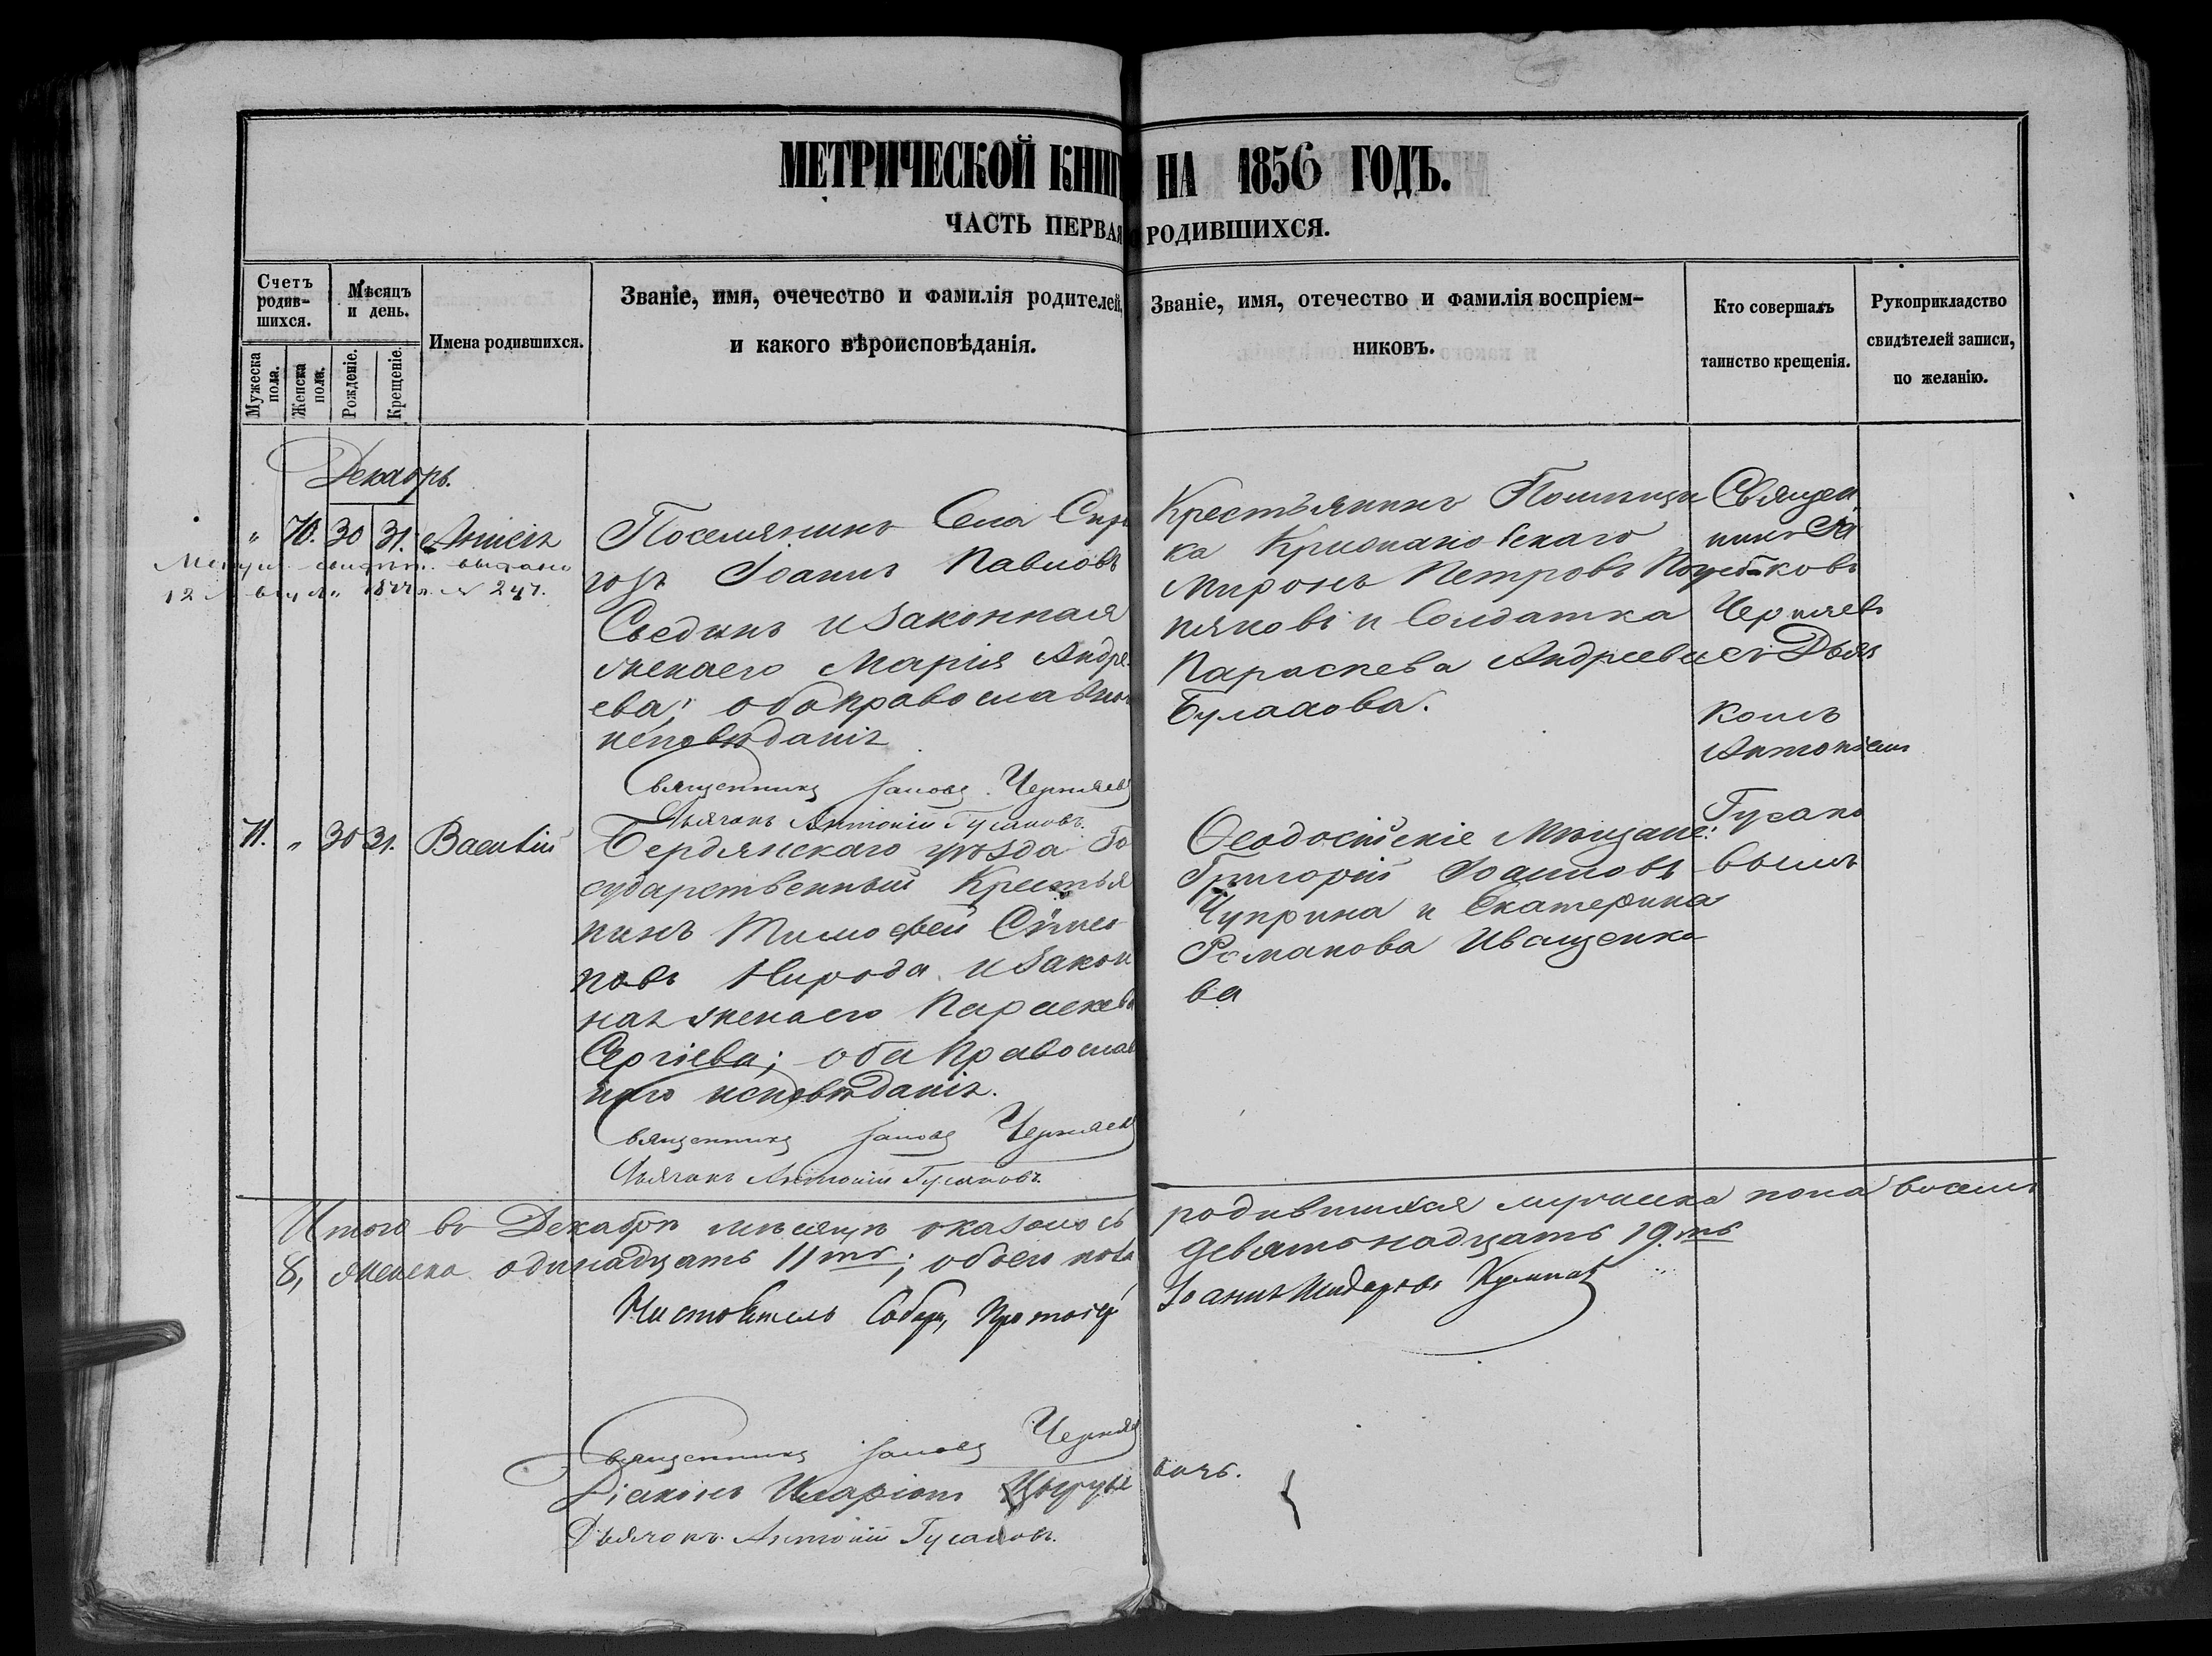 МЕТРИЧЕСКОЙ КНИГ НА 1856 ГОДЪ.
ЧАСТЬ ПЕРВАЯ РОДИВШИХСЯ.
Счетъ родив-
шихся.
Мужеска пола.
Женска пола.
Мѣсяцъ и день.
Рожденіе.
Крещеніе.
Имена родившихся.
Званіе, имя, очечество и фамилія родителей,
и какого вѣроисповѣданія.
Званіе, имя, отечество и фамилія воспріем-
никовъ.
Кто совершалъ
таинство крещенія.
Рукоприкладство
свидѣтелей записи,
по желанію.
Декабрь.
" 70. 30 31. Анисія
выдано
12 № 247.
Поселянинъ Села
Іоаннъ Павловъ
и законная
жена его Марія Андре
ева; оба православнаго
исповѣданія
Священникъ Іаковъ Черняевъ
Дьячокъ Антоній Гусаковъ.
Крестьянинъ Помѣщи
ка
Миронъ Петровъ
и Солдатка
Параскева Андреева
Булахова.
Священ
никъ Іа
ковъ
Черняевъ
съ Дьяч
комъ
Антоніемъ
Гусако
вымъ
71. " 30 31. Василій
Бердянскаго уѣзда Го
сударственный Крестья
нинъ Тимофей Симео
новъ Нирода и закон
ная жена его Параскева
Сергіева; оба Православ
наго исповѣданія.
Священникъ Іаковъ Черняевъ
Дьячокъ Антоній Гусаковъ.
Ѳеодосійскіе Мѣщане:
Григорій Іоанновъ
Чуприна и Екатерина
Романова Иващенко
ва
Итого въ Декабрѣ мѣсяцѣ оказалось родившихся мужеска пола восемь
8, женска одинадцать 11ть; обоего пола девятьнадцать 19.ть
Настоятель Собора, Протоіерей Іоаннъ
Священникъ Іаковъ Черняевъ
Діаконъ Иларіонъ
Дьячокъ Антоній Гусаковъ.